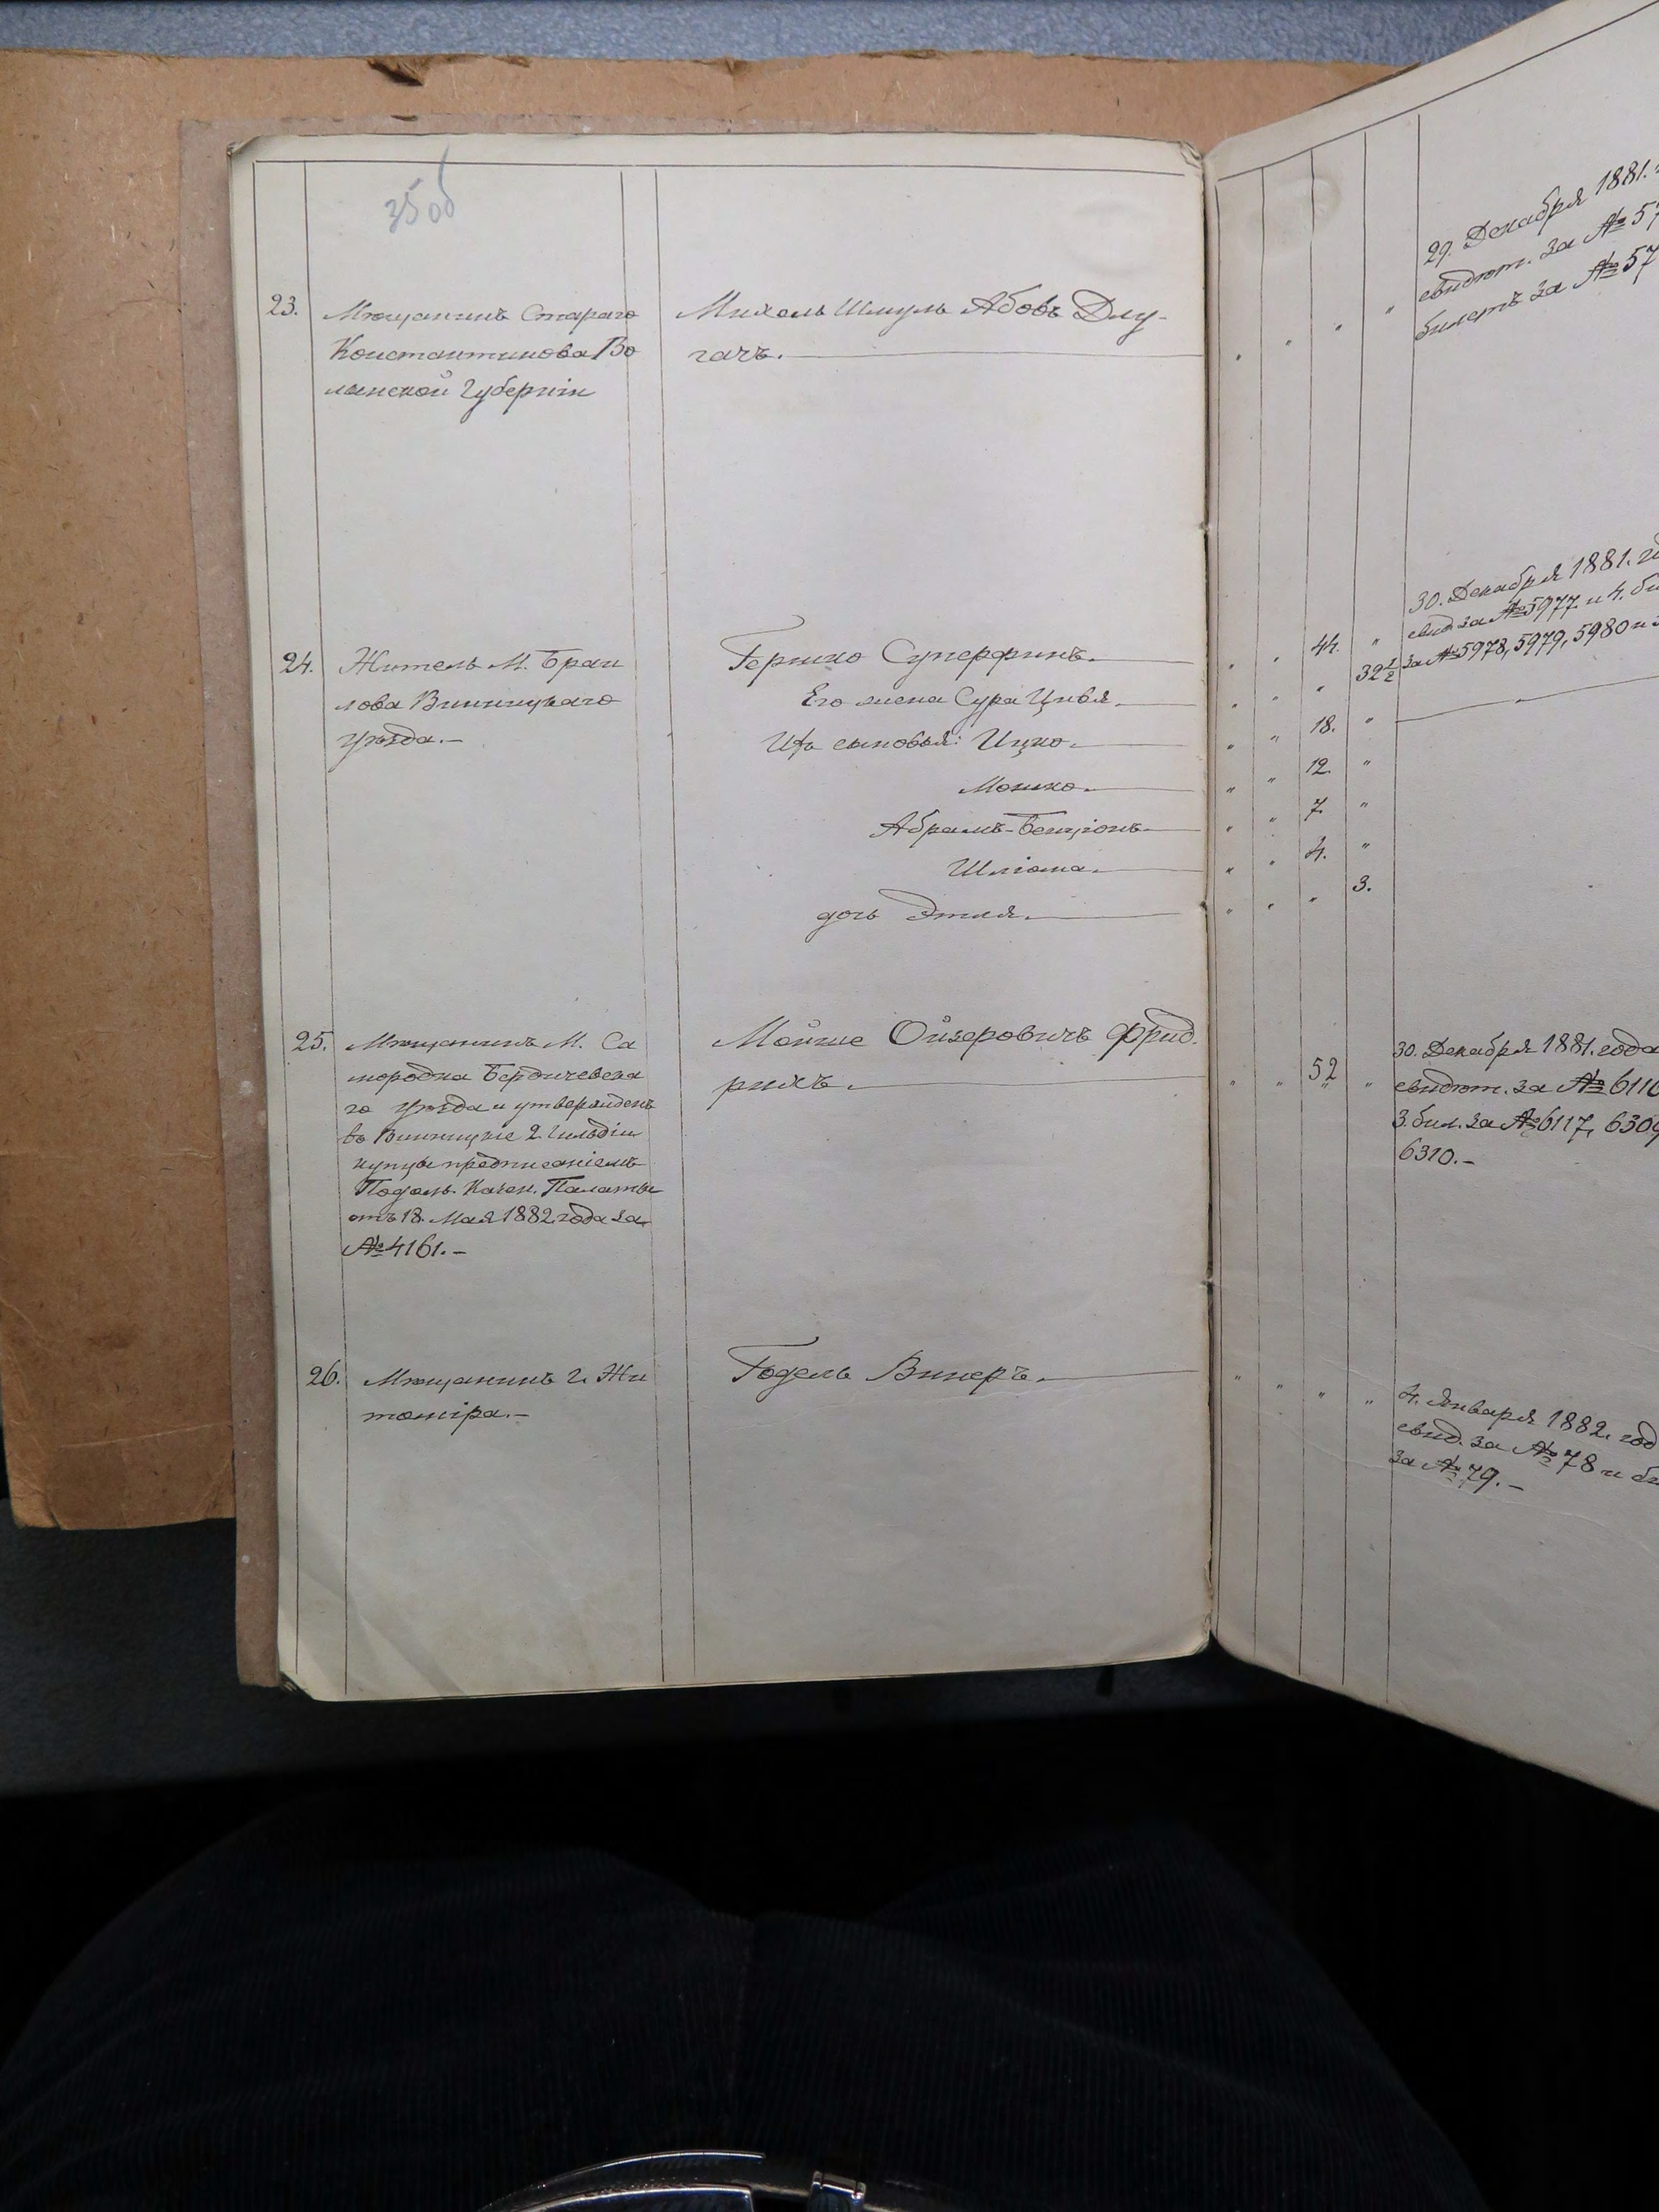 35 об
23. Мѣщанинъ Стараго
Константинова Во
лынской Губерніи
Михель Шмуль Абовъ Длу-
гачъ.
29. Декабря 1881.
свидѣт. за № 57
билетъ за № 57
24. Житель М. Браи
лова Винницкаго
уѣзда.-
Гершко Суперфинъ. 44.
Его жена Сура Цивья. 32 1/2
Ихъ сыновья: Ицко. 18.
Мошко. 12.
Абрамъ-Бенціонъ 7.
Шліома. 4.
дочь Этля. 3.
30. Декабря 1881. го
свид. за № 5977. и 4. би
за № 5978, 5979, 5980 и
25. Мѣщанинъ М. Са
мородка Бердичевска
го уѣзда и утвержденъ
въ Винницкіе 2. Гильдіи
купцы предписаніемъ
Подольс. Казен. Палаты
отъ 18. Мая 1882 года за
№ 4161.-
Мойше Ойзеровичъ Фрид.
рихъ. 52
30. Декабря 1881. года
свидѣт. за № 6116
3. бил. за № 6117, 6309
6310.-
26. Мѣщанинъ г. Жи
томіра.-
Годель Винеръ.
4. Января 1882. год
свид. за № 78 и би
за № 79.-